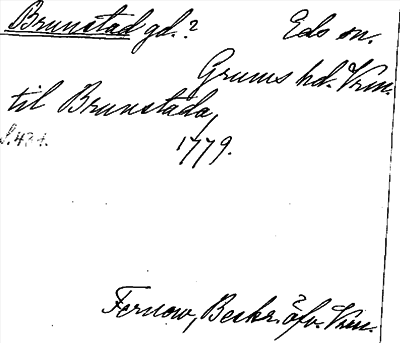 Brunstad gd.? Eds sn.
Grums hd. Vrm.
til Brunstada,
1779.
Fernow, Beskr. öfv. Vrm.